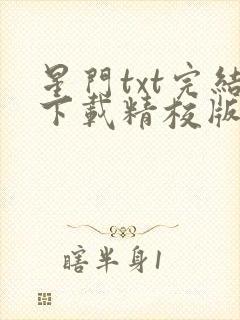 星門txt完結
下載精校版
瞎半身1